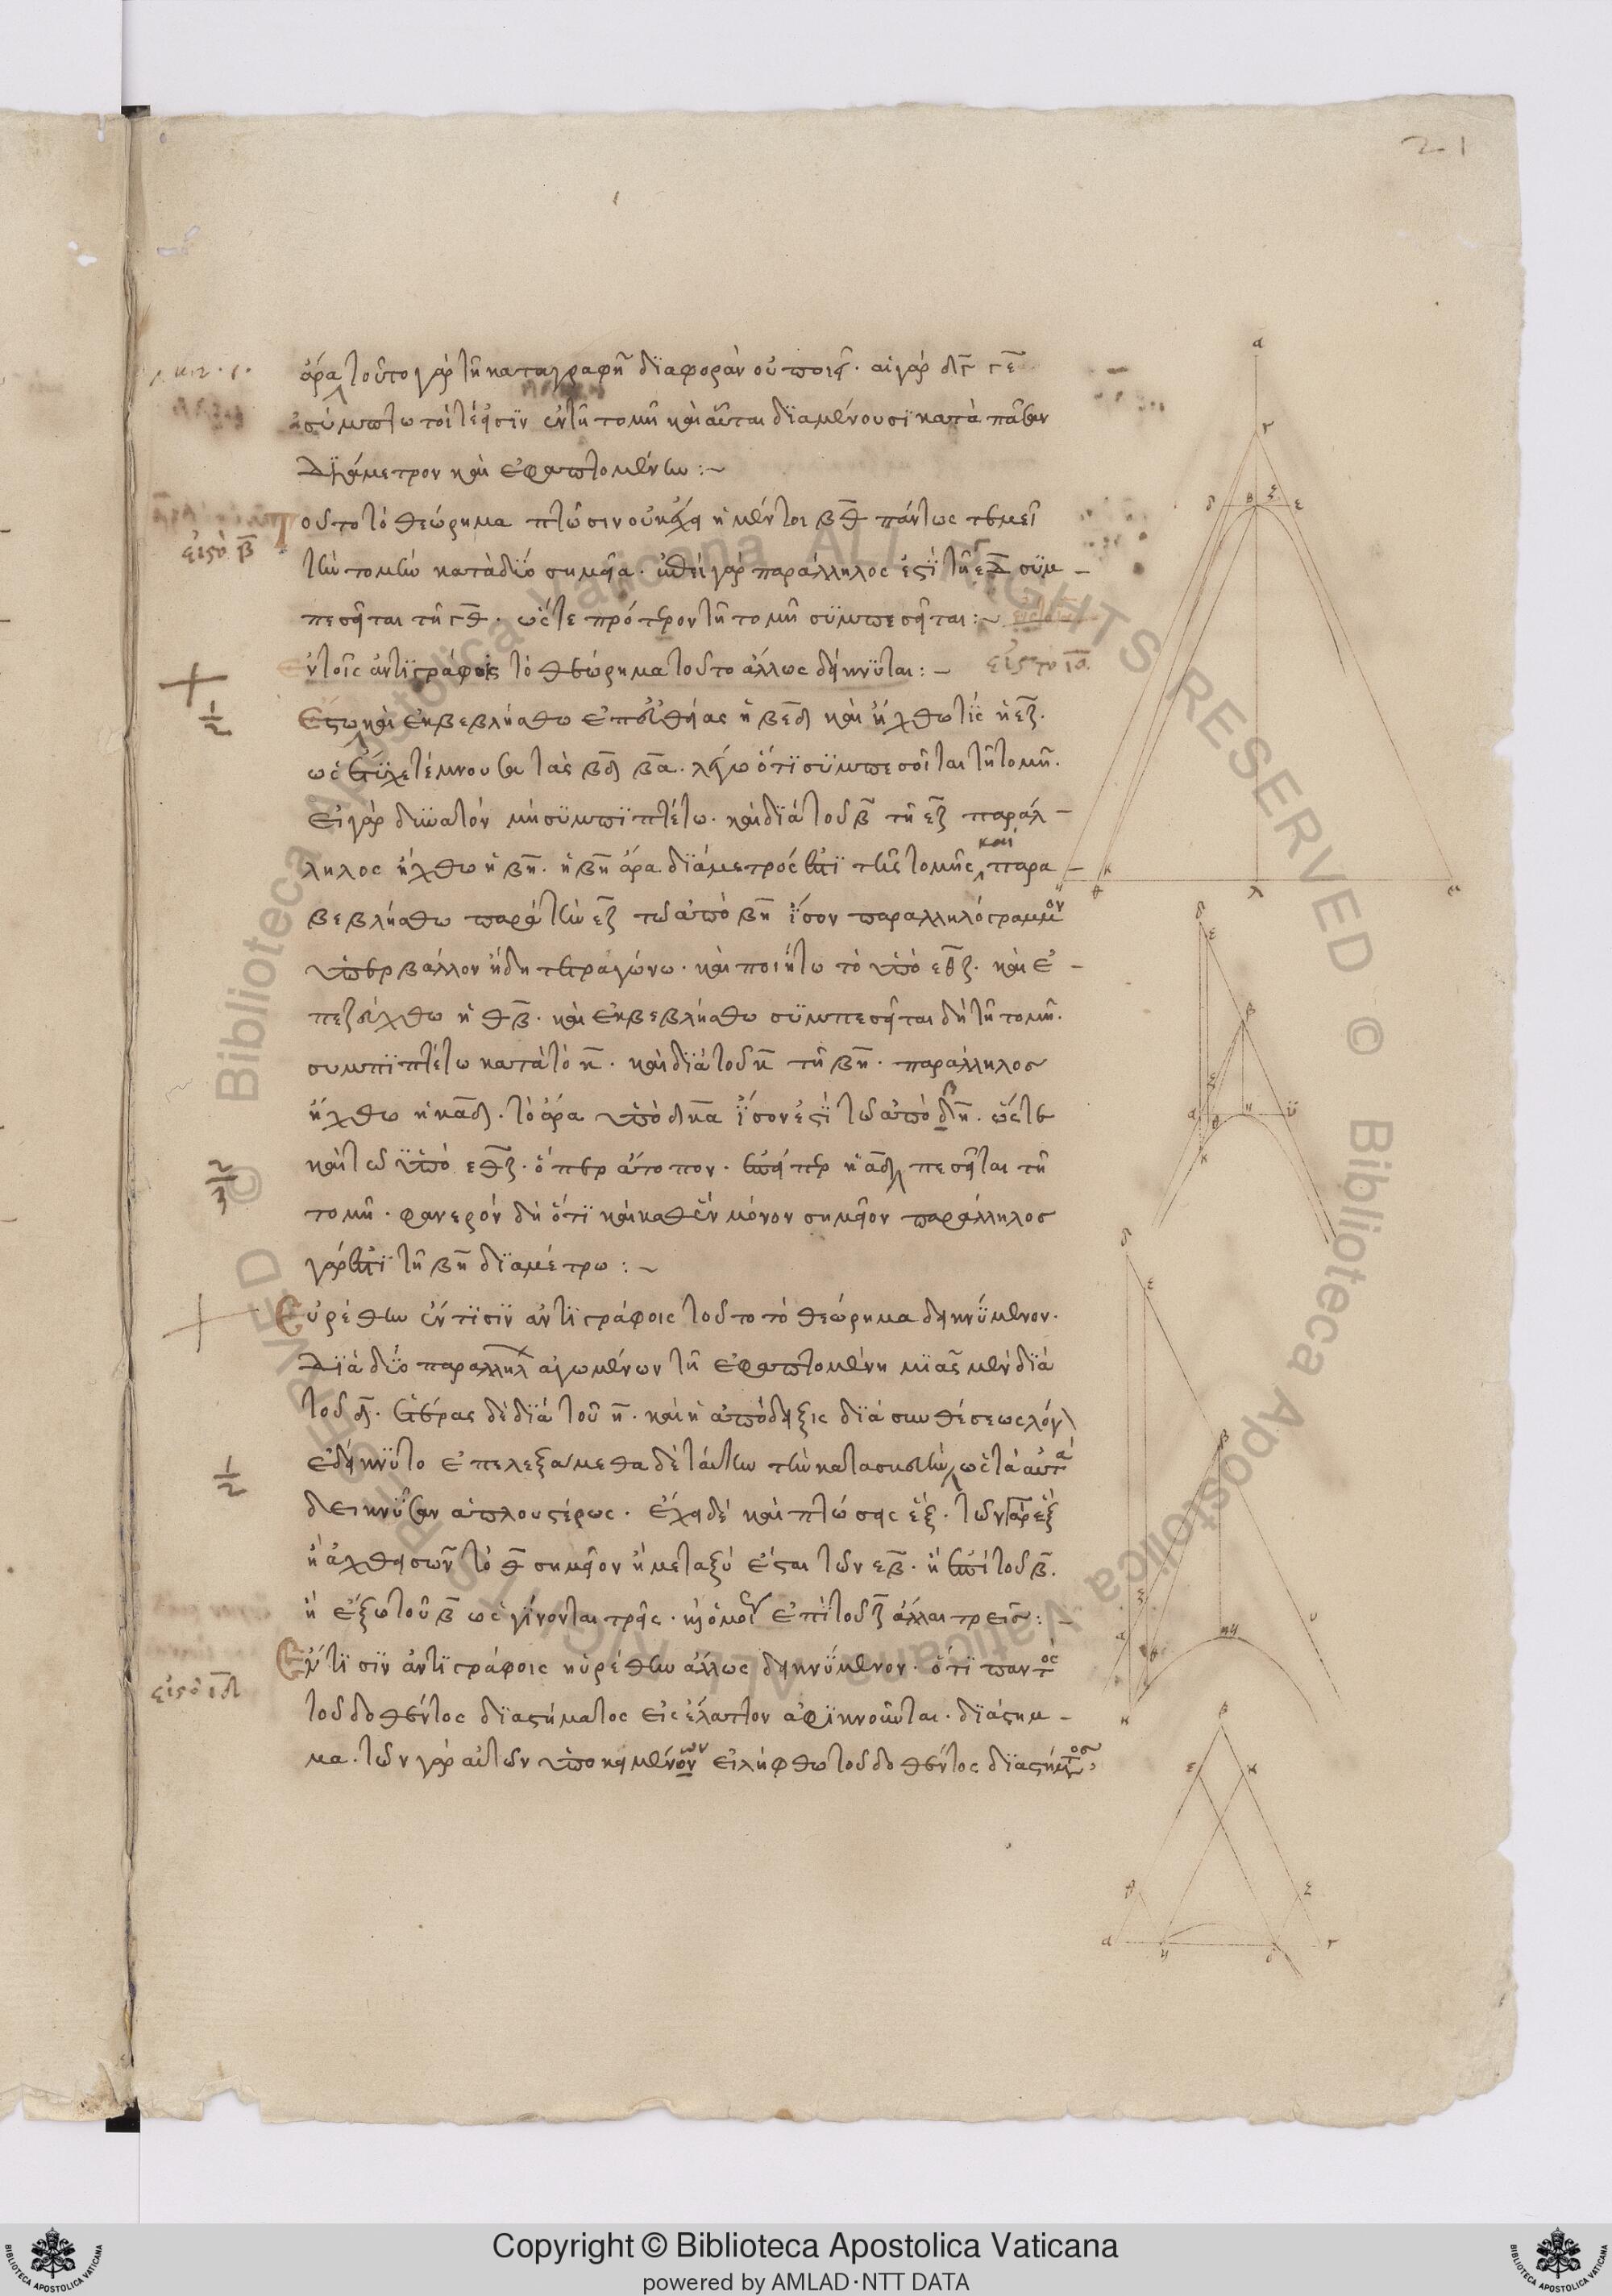 21
ἄρα τοῦτο γὰρ τῇ καταγραφῇ διαφορὰν οὐ ποιεῖ. αἱ γὰρ δγ γε
ἀσύμπτωτοί τέ εἰσιν ἐν τῇ τομῇ καὶ αὗται διαμένουσι κατὰ πᾶσαν
διάμετρον καὶ ἐφαπτομένην :~
εἰς τὸ β
Τοῦτο τὸ θεώρημα πτῶσιν οὐκ ἔχει ἡ μέντοι βθ πάντως τεμεῖ
τὴν τομὴν κατὰ δύο σημεῖα. ἐπεὶ γὰρ παράλληλός ἐστι τῇ γδ συμ-
πεσεῖται τῇ γθ. ὥστε πρότερον τῇ τομῇ συμπεσεῖται :~
εἰς τὸ ια
Ἐν τοῖς ἀντιγράφοις τὸ θεώρημα τοῦτο ἄλλως δείκνυται :-
Ἔστω καὶ ἐκβεβλήσθω ἐπ' εὐθείας ἡ βεδ καὶ ἤχθω τις ἡ εζ.
ὡς ἔτυχε τέμνουσα τὰς βδ βα. λέγω ὅτι συμπεσεῖται τῇ τομῇ.
Εἰ γὰρ δυνατόν μὴ συμπιπτέτω. καὶ διὰ τοῦ β τῇ εζ παράλ-
ληλος ἤχθω ἡ βη. ἡ βη ἄρα διάμετρός ἐστι τῆς τομῆς, καὶ παρα-
βεβλήσθω παρὰ τὴν εζ τῷ ἀπὸ βη ἴσον παραλληλόγραμμον
ὑπερβάλλον εἴδει τετραγώνῳ. καὶ ποιείτω τὸ ὑπὸ εθζ. καὶ ἐ-
πεζεύχθω ἡ θβ. καὶ ἐκβεβλήσθω συμπεσεῖται δὴ τῇ τομῇ.
συμπιπτέτω κατὰ τὸ κ. καὶ διὰ τοῦ κ τῇ βη. παράλληλος
ἤχθω ἡ καδ. τὸ ἄρα ὑπὸ δκα ἴσον ἐστὶ τῷ ἀπὸ βη. ὥστε
καὶ τῷ ὑπὸ εθζ. ὅπερ ἄτοπον. ἐπείπερ ἡ αδ πεσεῖται τῇ
τομῇ. φανερὸν δὴ ὅτι καὶ καθ' ἓν μόνον σημεῖον παράλληλος
γάρ ἐστι τῇ βη διαμέτρῳ :~
Εὑρέθη ἔν τισιν ἀντιγράφοις τοῦτο τὸ θεώρημα δεικνύμενον.
Διὰ δύο παραλλήλ ἀγωμένων τῇ ἐφαπτομένῃ μιᾶς μὲν διὰ
τοῦ δ. ἑτέρας δὲ διὰ τοῦ η. καὶ ἡ ἀπόδειξις διὰ συνθέσεως λόγ
ἐδείκνυτο ἐπελεξάμεθα δὲ ταύτην τὴν κατασκευὴν ὡς τὰ αὐτὰ
δεικνῦσαν ἁπλουστέρως. ἔχει δὲ καὶ πτώσεις ἕξ. τῶν γὰρ ἐξ
ἠἀχθεισῶν τὸ θ σημεῖον ἢ μεταξὺ ἔσται τῶν εβ. ἢ ἐπὶ τοῦ β.
ἢ ἔξω τοῦ β ὡς γίνονται τρεῖς. καὶ ὁμοί ἐπὶ τοῦ ζ ἄλλαι τρεῖς :-
εἰς τὸ ιδ
Ἔν τισιν ἀντιγράφοις ηὑρέθη ἄλλως δεικνύμενον. ὅτι παντὸς
τοῦ δοθέντος διαστήματος εἰς ἔλαττον ἀφικνοῦνται. διάστημ-
μα. τῶν γὰρ αὐτῶν ὑποκειμένων εἰλήφθω τοῦ δοθέντος διαστήματος
Copyright © Biblioteca Apostolica Vaticana
powered by AMLAD·NTT DATA